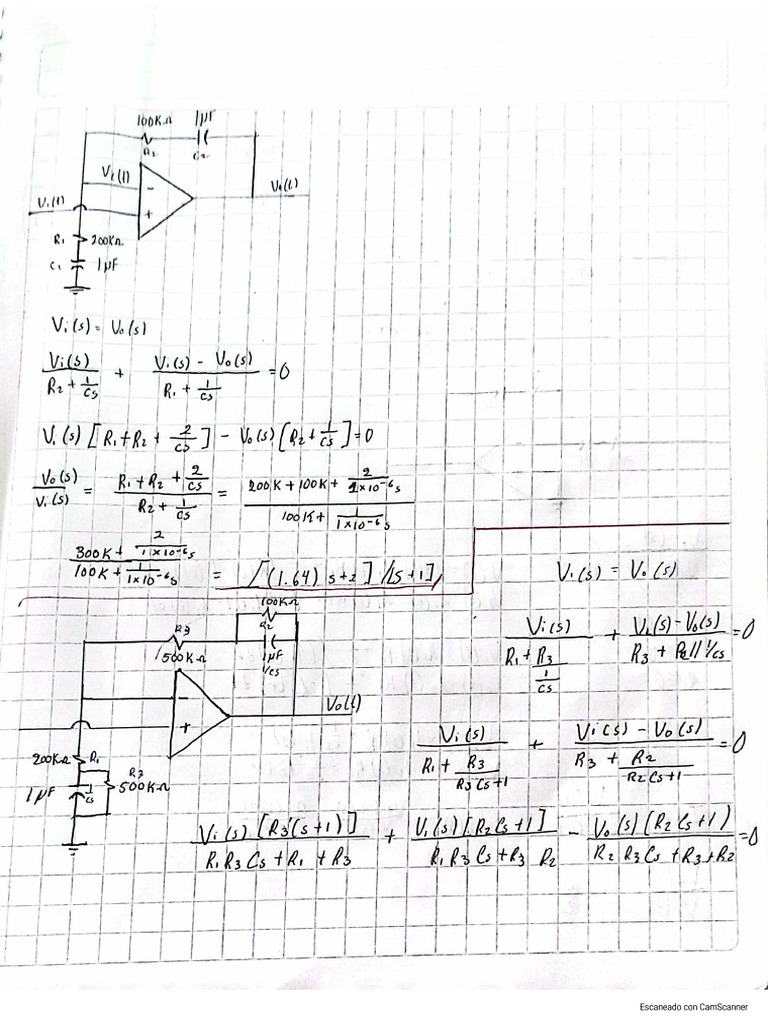 100KΩ 1μF
R2 C2
Vi(t)
-
Vo(t)
Vi(t)
+
R1 200KΩ
C1 1μF
Vi(s) = Vo(s)
Vi(s)/(R2 + 1/Cs) + (Vi(s) - Vo(s))/(R1 + 1/Cs) = 0
Vi(s) [R1 + R2 + 2/Cs] - Vo(s) [R2 + 1/Cs] = 0
Vo(s)/Vi(s) = (R1 + R2 + 2/Cs)/(R2 + 1/Cs) = (200K + 100K + 2/(1x10^-6 s))/(100K + 1/(1x10^-6 s))
(300K + 2/(1x10^-6 s))/(100K + 1/(1x10^-6 s)) = [(1.64) s+2] /[s+1]
100KΩ
R2
R3
500KΩ
1μF
1/Cs
Vo(t)
-
+
200KΩ R1
1μF 1/Cs
R3
500KΩ
Vi(s) = Vo(s)
Vi(s)/(R1 + R3/(1/Cs)) + (Vi(s) - Vo(s))/(R3 + R2//1/Cs) = 0
Vi(s)/(R1 + R3/(R3Cs+1)) + (Vi(s) - Vo(s))/(R3 + R2/(R2Cs+1)) = 0
Vi(s) [R3(s+1)]/(R1R3Cs + R1 + R3) + Vi(s) [R2Cs+1]/(R1R3Cs + R3 R2) - Vo(s) (R2Cs+1)/(R2R3Cs + R3 + R2) = 0
Escaneado con CamScanner